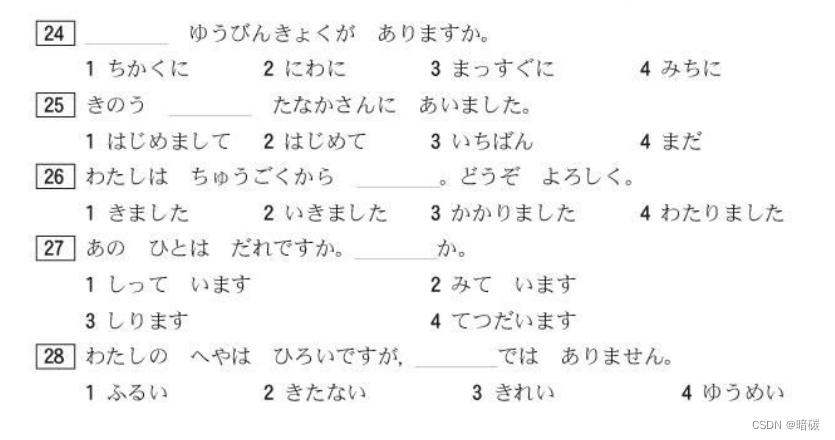 24 ＿＿＿＿ ゆうびんきょくが ありますか。
1 ちかくに 2 にわに 3 まっすぐに 4 みちに
25 きのう ＿＿＿＿ たなかさんに あいました。
1 はじめまして 2 はじめて 3 いちばん 4 まだ
26 わたしは ちゅうごくから ＿＿＿＿。どうぞ よろしく。
1 きました 2 いきました 3 かかりました 4 わたりました
27 あの ひとは だれですか。＿＿＿＿か。
1 しって います 2 みて います
3 しります 4 てつだいます
28 わたしの へやは ひろいですが, ＿＿＿＿では ありません。
1 ふるい 2 きたない 3 きれい 4 ゆうめい
CSDN @暗碳